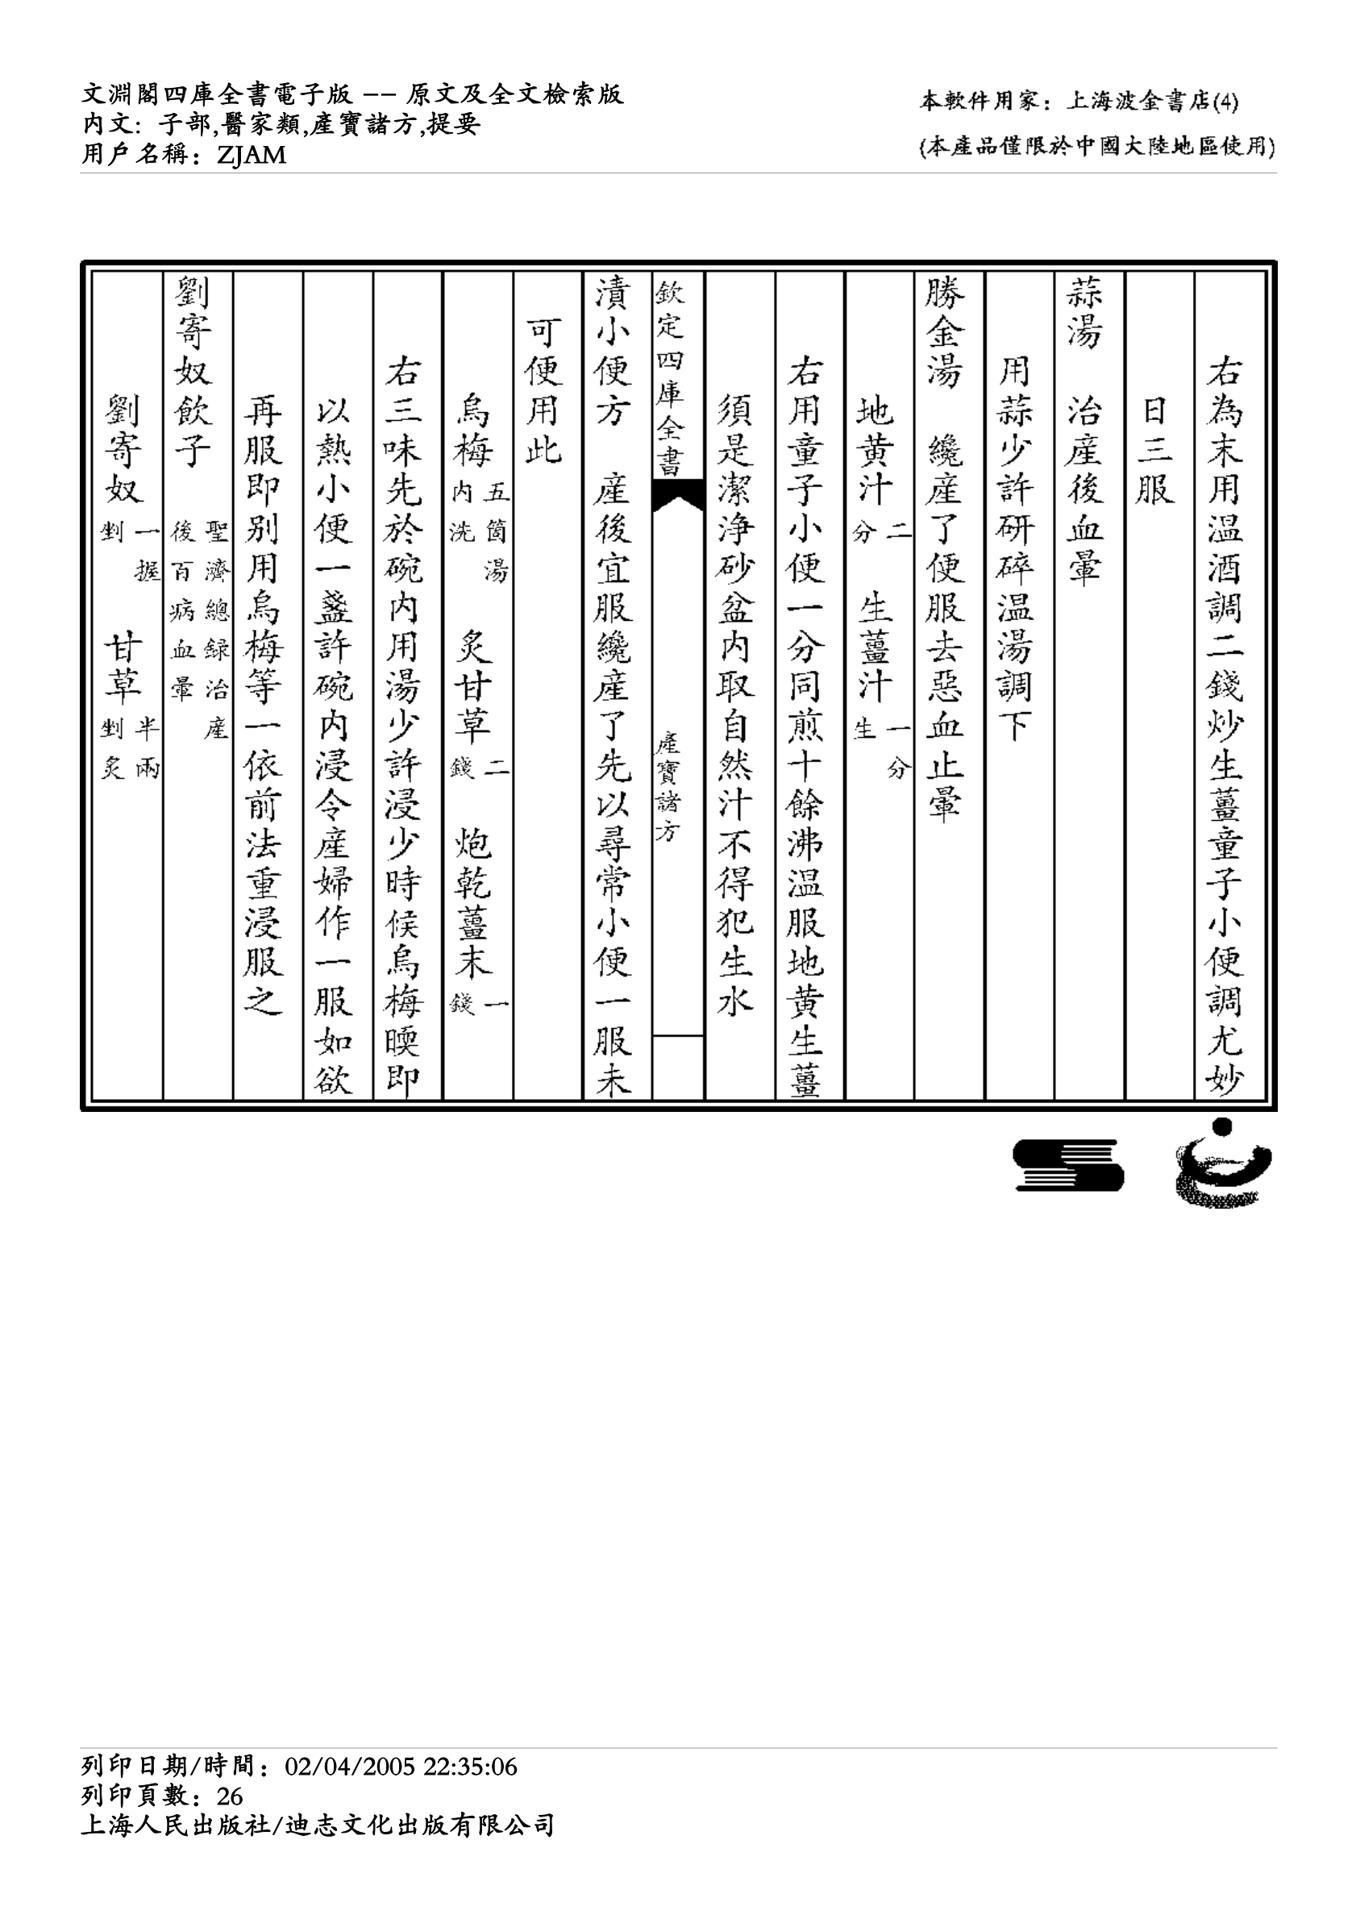 文淵閣四庫全書電子版 -- 原文及全文檢索版
内文: 子部,醫家類,產寶諸方,提要
用戶名稱: ZJAM
本軟件用家: 上海波金書店(4)
(本產品僅限於中國大陸地區使用)
右為末用温酒調二錢炒生薑童子小便調尤妙
日三服
蒜湯 治産後血暈
用蒜少許研碎温湯調下
勝金湯 纔産了便服去惡血止暈
地黄汁二分 生薑汁一分生
右用童子小便一分同煎十餘沸温服地黄生薑
須是潔浄砂盆内取自然汁不得犯生水
欽定四庫全書 產寶諸方
漬小便方 産後宜服纔産了先以尋常小便一服未
可便用此
烏梅五箇湯内洗 炙甘草二錢 炮乾薑末一錢
右三味先於碗内用湯少許浸少時候烏梅㬉即
以熱小便一盞許碗内浸令産婦作一服如欲
再服即别用烏梅等一依前法重浸服之
劉寄奴飲子 聖濟總録治産後百病血暈
劉寄奴一握剉 甘草半兩剉炙
列印日期/時間: 02/04/2005 22:35:06
列印頁數: 26
上海人民出版社/迪志文化出版有限公司